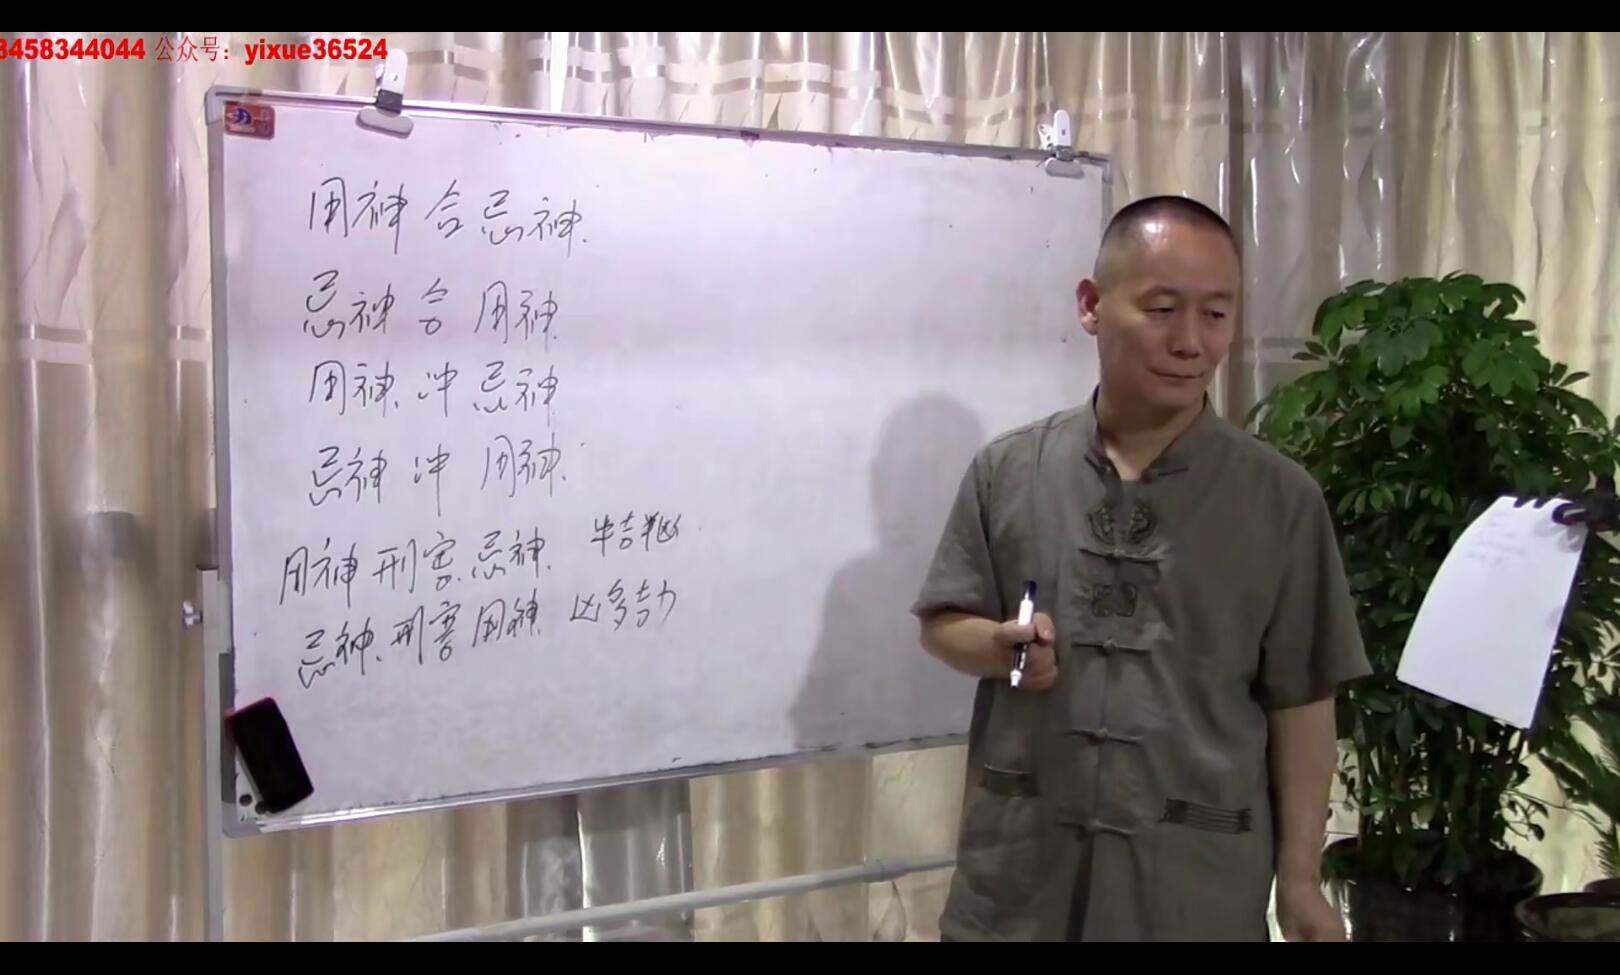 3458344044 公众号：yixue36524
用神合忌神.
忌神合用神
用神冲忌神
忌神冲用神.
用神刑害忌神 半吉半凶
忌神刑害用神 凶多吉少